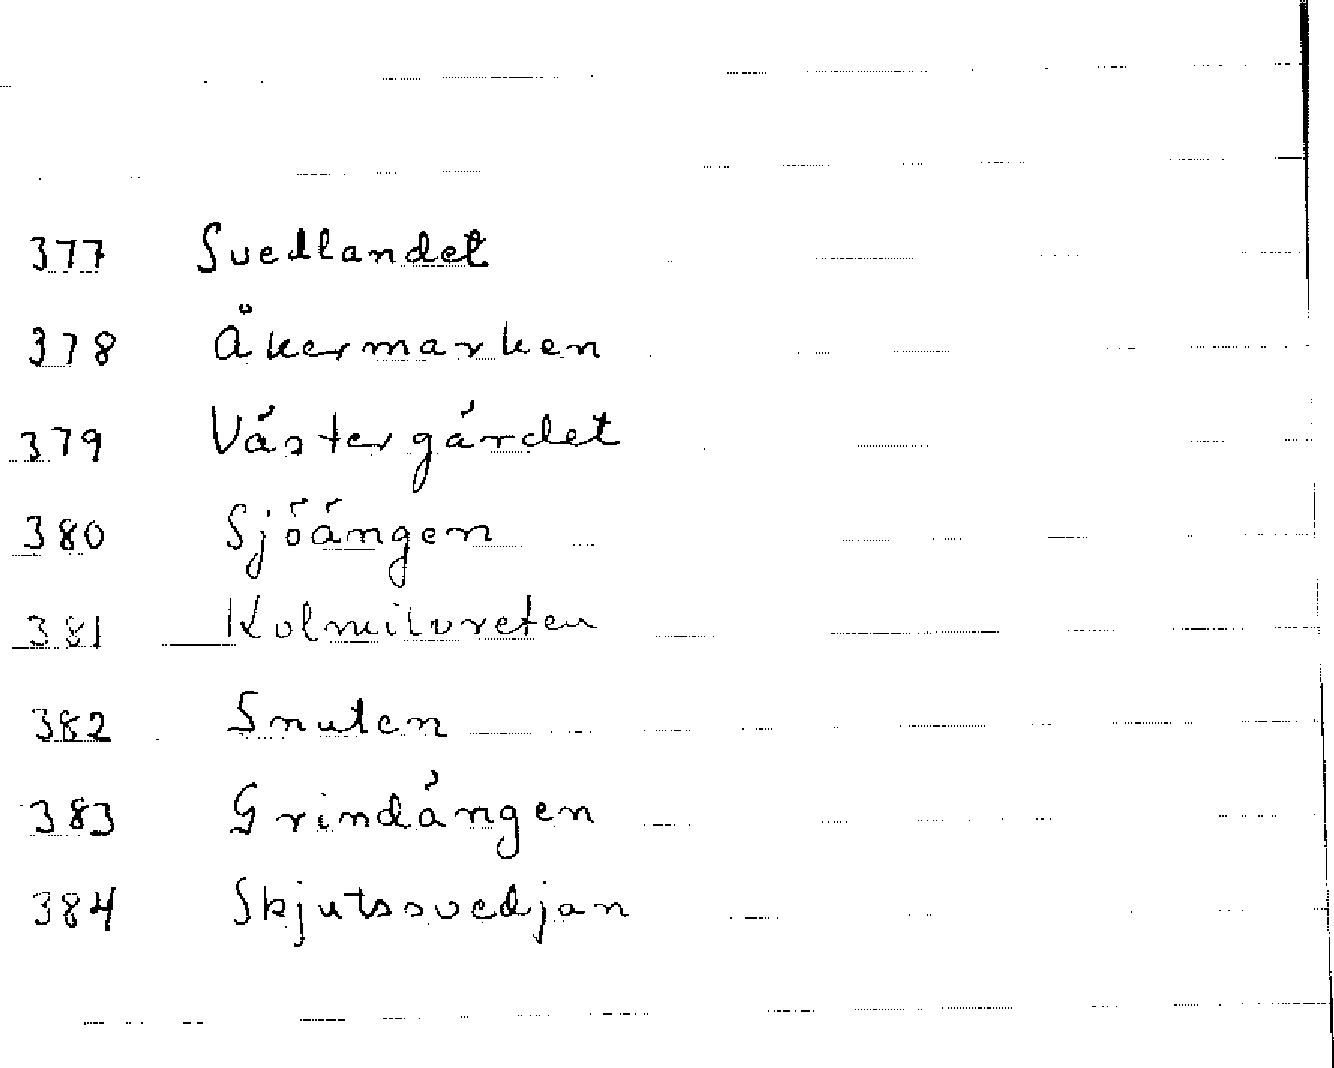 377 Svedlandet
378 Åkermarken
379 Västergärdet
380 Sjöängen
381 Kolmilvreten
382 Snuten
383 Grindängen
384 Skjutssvedjan